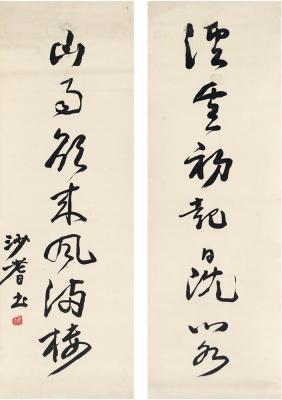 溪雲初起日沈閣
山雨欲來風滿樓
沙耆書